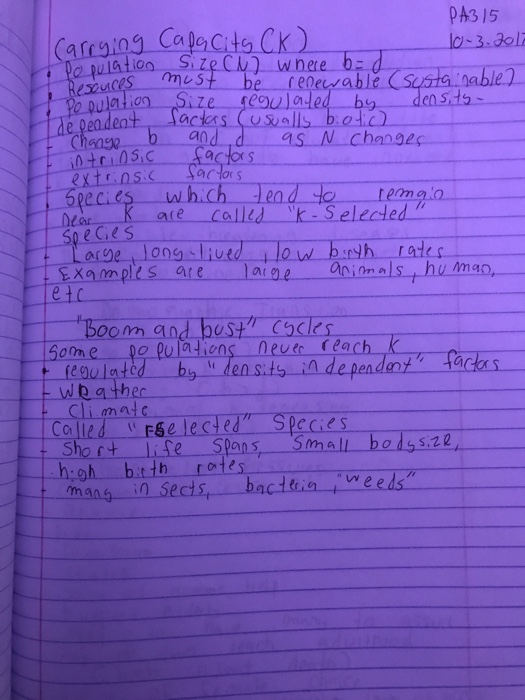 PA315
Carrying Capacity (K) 10-3.2017
• Population Size (N) where b=d
• Resources must be renewable (sustainable)
• Population Size regulated by density-
dependent factors (usually biotic)
- Change b and d as N changes
- intrinsic factors
- extrinsic factors
• Species which tend to remain
near K are called "K-Selected"
Species
- Large, long-lived, low birth rates
- Examples are large animals, human,
etc
"Boom and bust" cycles
Some populations never reach K
• regulated by "density independent" factors
- Weather
- Climate
Called "r-selected" Species
- Short life spans, small body size,
- high birth rates
- many insects, bacteria, "weeds"